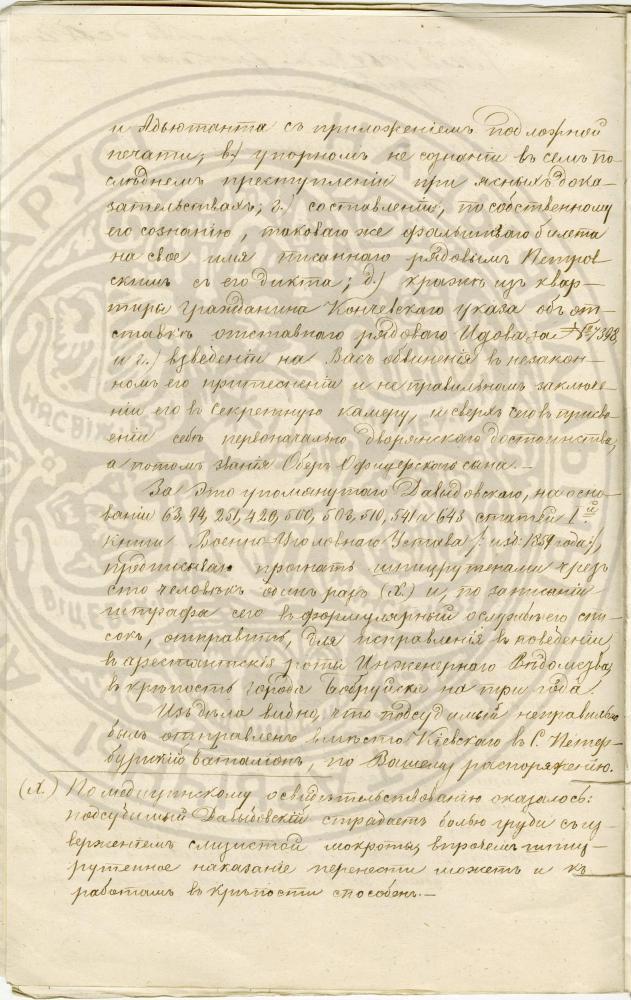 и Адъютанта съ приложеніемъ подложной
печати; в.) упорномъ не сознаніи въ семъ по-
слѣднемъ преступленіи при ясныхъ дока-
зательствахъ; г.) составленіи, по собственному
его сознанію, таковаго же фальшиваго билета
на свое имя писаннаго рядовымъ Петров-
скимъ съ его дикта; д.) кражѣ изъ квар-
тиры гражданина Кончевскаго указа объ от-
ставкѣ отставнаго рядоваго Идова за № 7398,
и г.) взведеніи на Васъ обвиненія въ незакон-
номъ его притесненіи и не правильномъ заключе-
ніи его въ секретную камеру, и сверхъ чего въ присво-
еніи себѣ первоначально дворянскаго достоинства,
а потомъ званія Оберъ Офицерскаго сына. —
За это упомянутаго Давыдовскаго, на осно-
ваніи 63, 94, 251, 420, 500, 508, 510, 541 и 643 статей 1й
книги Военно-Уголовнаго Устава /: изд: 1859 года :/,
предписываю прогнать шпицрутенами чрезъ
сто человѣкъ одинъ разъ (А.) и, по записаніи
штрафа сего въ формулярный о службѣ его спи-
сокъ, отправить, для исправленія въ поведеніи,
въ арестантскія роты Инженернаго Вѣдомства,
въ крѣпость города Бобруйска на три года.
Изъ дѣла видно, что подсудимый неправильно
былъ отправленъ вмѣсто Кіевскаго въ С. Петер-
бургскій баталіонъ, по Вашему распоряженію.
(А.) По медицинскому освидѣтельствованію оказалось:
подсудимый Давыдовскій страдаетъ болью груди съ из-
верженіемъ слизистой мокроты, впрочемъ шпиц-
рутенное наказаніе перенести можетъ и къ
работамъ въ крѣпости способенъ. —
НЯСВІЖ